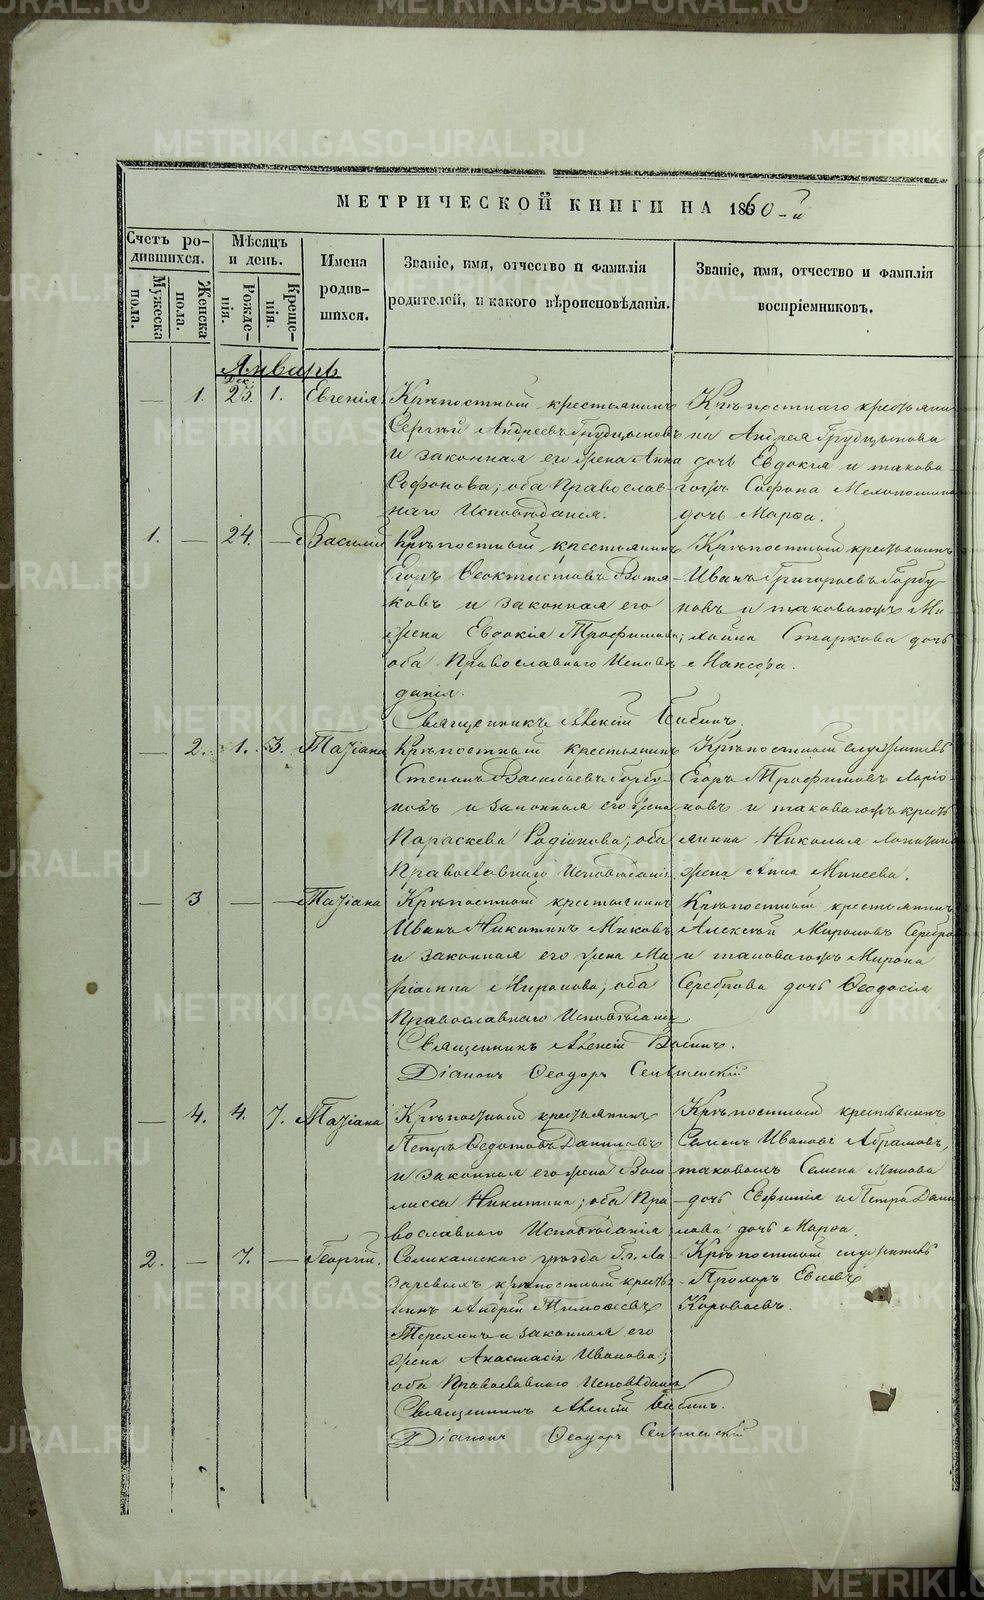 МЕТРИЧЕСКОЙ КНИГИ НА 1860-й
Счетъ ро-
дившихся.
Мужеска пола.
Женска пола.
Мѣсяцъ
и день.
Рожде-
нія.
Креще-
нія.
Имена
родив-
шихся.
Званіе, имя, отчество и фамилія
родителей, и какого вѣроисповѣданія.
Званіе, имя, отчество и фамилія
воспріемниковъ.
Январь
Дек.
— 1. 25. 1. Евгенія
Крѣпостный крестьянинъ
Сергѣй Андреевъ Грудцыновъ
и законная его жена Анна
Софонова; оба Православ-
наго Исповѣданія.
Крѣпостнаго крестьяни-
на Андрея Грудцынова
дочь Евдокія и таково-
гожъ Софона
дочь Марѳа.
1. — 24. — Василій
Крѣпостный крестьянинъ
Егоръ Ѳеоктистовъ Вотя-
ковъ и законная его
жена Евдокія Трофимова;
оба Православнаго Исповѣ-
данія.
Крѣпостный крестьянинъ
Иванъ Григорьевъ Горбу-
новъ и таковагожъ Ми-
хаила Старкова дочь
Священникъ Алексій Бибинъ.
— 2. 1. 3. Татіана
Крѣпостный крестьянинъ
Степанъ Васильевъ Горбу-
новъ и законная его жена
Параскева Родіонова; оба
Православнаго Исповѣданія.
Крѣпостный служитель
Егоръ Трофимовъ Ларіо-
новъ и таковагожъ кресть-
янина Николая
жена Анна Минеева.
— 3 — — Татіана
Крѣпостный крестьянинъ
Иванъ Никитинъ Миковъ
и законная его жена Ма-
ріанна Миронова; оба
Православнаго Исповѣданія
Крѣпостный крестьянинъ
Алексѣй Мироновъ Серебро-
и таковагожъ Мирона
дочь Ѳеодосія
Священникъ Алексій Бибинъ.
Діаконъ Ѳеодоръ
— 4. 4. 7. Татіана
Крѣпостный крестьянинъ
Петръ Ѳедотовъ Даниловъ
и законная его жена Васи-
лисса Никитина; оба Пра-
вославнаго Исповѣданія
Крѣпостный крестьянинъ
Семенъ Ивановъ Абрамовъ,
таковыхъ Семена Микова
дочь Евфимія и Петра Дани-
лова дочь Марѳа.
2. — 7. — Георгій.
Соликамскаго уѣзда Гг. Ла-
заревыхъ крѣпостный кресть-
нинъ Андрей Тимоѳеевъ
Терехинъ и законная его
жена Анастасія Иванова;
оба Православнаго Исповѣданія
Крѣпостный служитель
Прохоръ Евсевъ
Короваевъ.
Священникъ Алексій Бибинъ.
Діаконъ Ѳеодоръ
METRIKI.GASO-URAL.RU